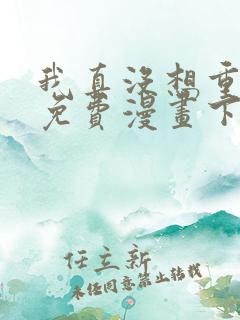 我真没想重
免費漫畫下
任立新
未经同意禁止转载